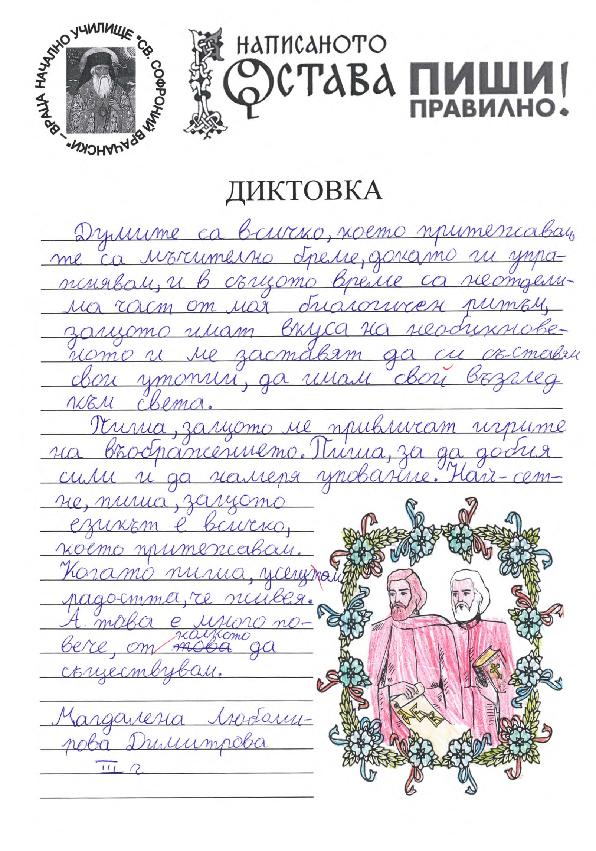 НАЧАЛНО УЧИЛИЩЕ "СВ. СОФРОНИЙ ВРАЧАНСКИ" – ВРАЦА
НАПИСАНОТО
ОСТАВА
ПИШИ
ПРАВИЛНО!
ДИКТОВКА
Думите са всичко, което притежавам,
те са мъчително бреме, докато ги упра-
жнявам, и в същото време са неотдели-
ма част от мая биологичен ритъм,
защото имат вкуса на необикнове-
ното и ме заставят да си съставям
свои утопии, да имам свой възглед
към света.
Пиша, защото ме привличат игрите
на въображението. Пиша, за да добия
сили и да намеря упование. Най-сет-
не, пиша, защото
езикът е всичко,
което притежавам.
Когато пиша, усещам
радостта, че живея.
А това е много по-
вече, от колкото
това да
съществувам.
Магдалена Любоми-
рова Димитрова
III г